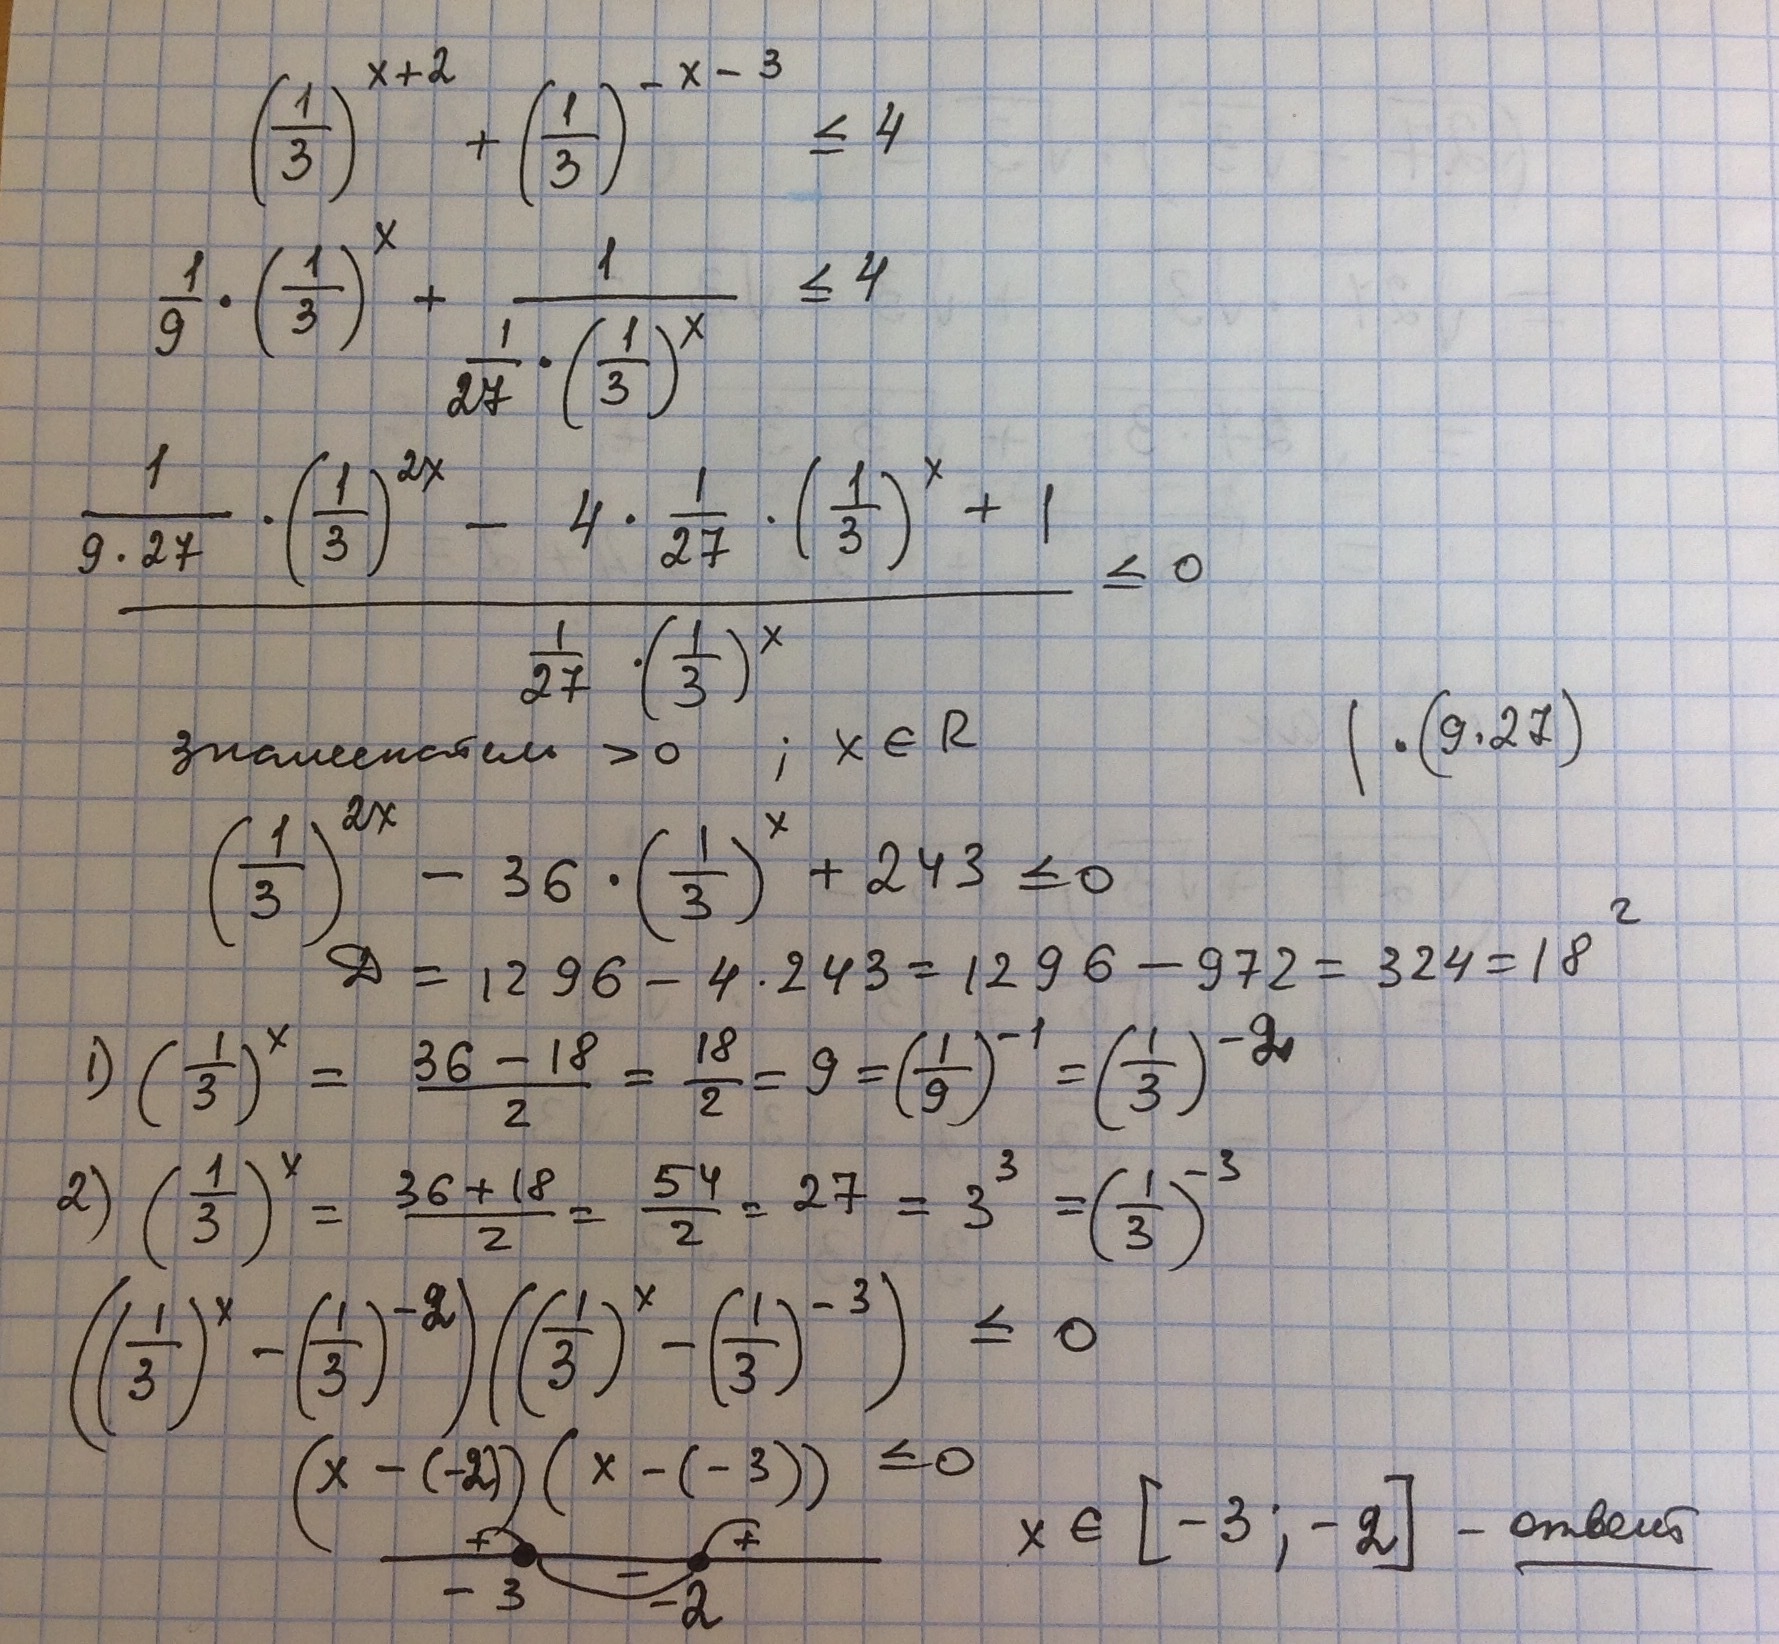 (1/3)^(x+2) + (1/3)^(-x-3) ≤ 4
1/9 · (1/3)^x + 1/(1/27 · (1/3)^x) ≤ 4
(1/(9·27) · (1/3)^(2x) - 4 · 1/27 · (1/3)^x + 1)/(1/27 · (1/3)^x) ≤ 0
знаменатель > 0 ; x ∈ R | · (9·27)
(1/3)^(2x) - 36 · (1/3)^x + 243 ≤ 0
D = 1296 - 4·243 = 1296 - 972 = 324 = 18^2
1) (1/3)^x = (36 - 18)/2 = 18/2 = 9 = (1/9)^(-1) = (1/3)^(-2)
2) (1/3)^x = (36 + 18)/2 = 54/2 = 27 = 3^3 = (1/3)^(-3)
((1/3)^x - (1/3)^(-2))((1/3)^x - (1/3)^(-3)) ≤ 0
(x - (-2))(x - (-3)) ≤ 0
+ - +
-3 -2
x ∈ [-3; -2] - ответ